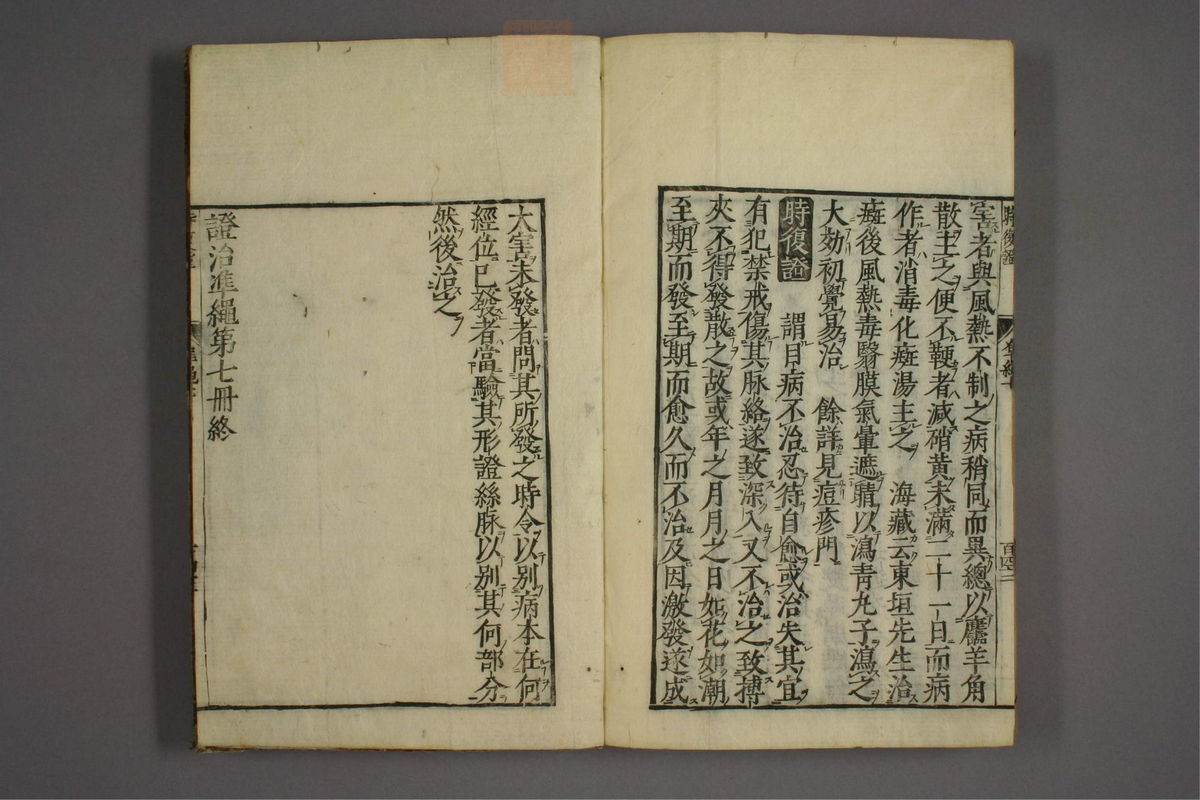 害者與風熱不制之病稍同而異總以羚羊角
散主之便不鞕者減硝黃未滿二十一日而病
作者消毒化癍湯主之　海藏云東垣先生治
癍後風熱毒翳膜氣暈遮睛以瀉青丸子瀉之
大効初覺易治　餘詳見痘疹門
時復證　謂目病不治忍待自愈或治失其宜
有犯禁戒傷其脉絡遂致深入又不治之致搏
夾不得發散之故或年之月月之日如花如潮
至期而發至期而愈久而不治及因激發遂成
大害未發者問其所發之時令以別病本在何
經位已發者當驗其形證絲脉以別其何部分
然後治之
證治準繩第七冊終